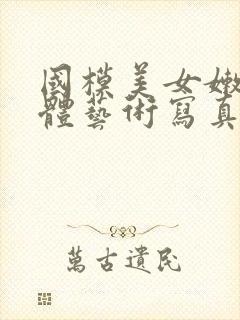 國模美女嫩
體藝術寫真
萬古遺民